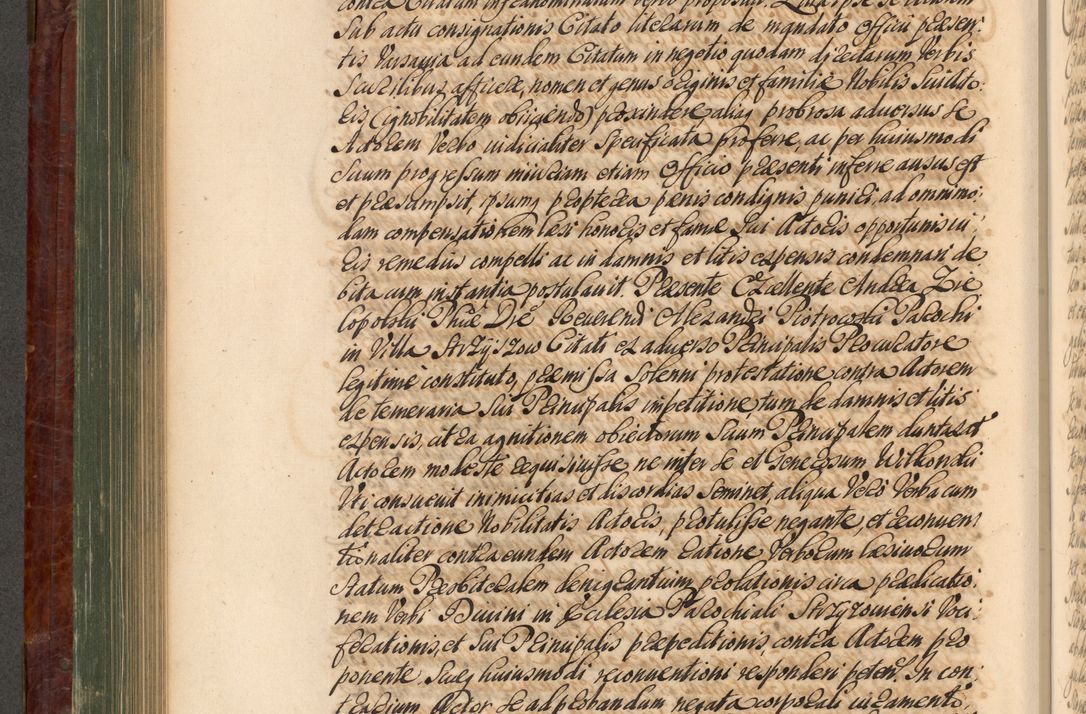 Sub actu consignationis Citato literarum de mandato Officii præsen:
tis Varsavia ad eundem Citatum in negotio quodam dicedarum Verbis
Scurilibus afficere, nomen et genus originis et familiæ Nobilis
ris (ignobilitatem obiiciendo) proscindere aliaq probrosa adversus se
Actorem Verbo iudicialiter specificata proferre, ac per huiusmodi
suum progressum iniuriam etiam Officio præsenti inferre ausus est
et præsumpsit, ipsumq propterea pænis condignis puniri, ad omnimo:
dam compensationem læsi honoris et famæ sui Actoris opportunis iu:
ris remediis compelli ac in damnis et litis expensis condemnari de
bita cum instantia postulavit. Præsente Excellente Andrea Zie
lopolski Phiæ Dre Reverendi Alexandri Piotrowski Parochi
in Villa Strzyszow Citati ex adverso Principalis Procuratore
legitime constituto, præmissa solenni protestatione contra Actorem
de temeraria sui Principalis impetitione, tum de damnis et litis
expensis, citra agnitionem obiectorum suum Principalem duntaxat
Actorem modeste requisivisse, ne inter se et Generosum Witkowski
Uti consuevit inimicitias et discordias seminet, aliqua Vero Verba cum
detractione Nobilitatis Actoris, protulisse negante, et reconven
tionaliter contra eundem Actorem ratione Verborum læsivorum
statum Presbiteralem denigrantium, prolationis circa prædicatio:
nem Verbi Divini in Ecclesia Parochiali Strzyzowiensi Voci:
ferationis, et sui Principalis præpeditionis, contra Actorem pro
ponente, suæq huiusmodi reconventioni responderi peten. In con:
trarium Actor se ad probandum negata corporali iuramento,